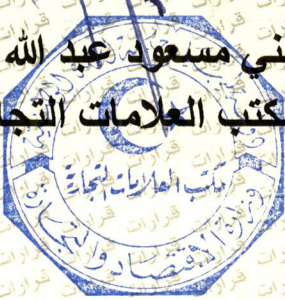 ني مسعود عبد الله
كتب العلامات التجا
مكتب العلامات التجارية
وزارة الاقتصاد والتجارة
قرارات